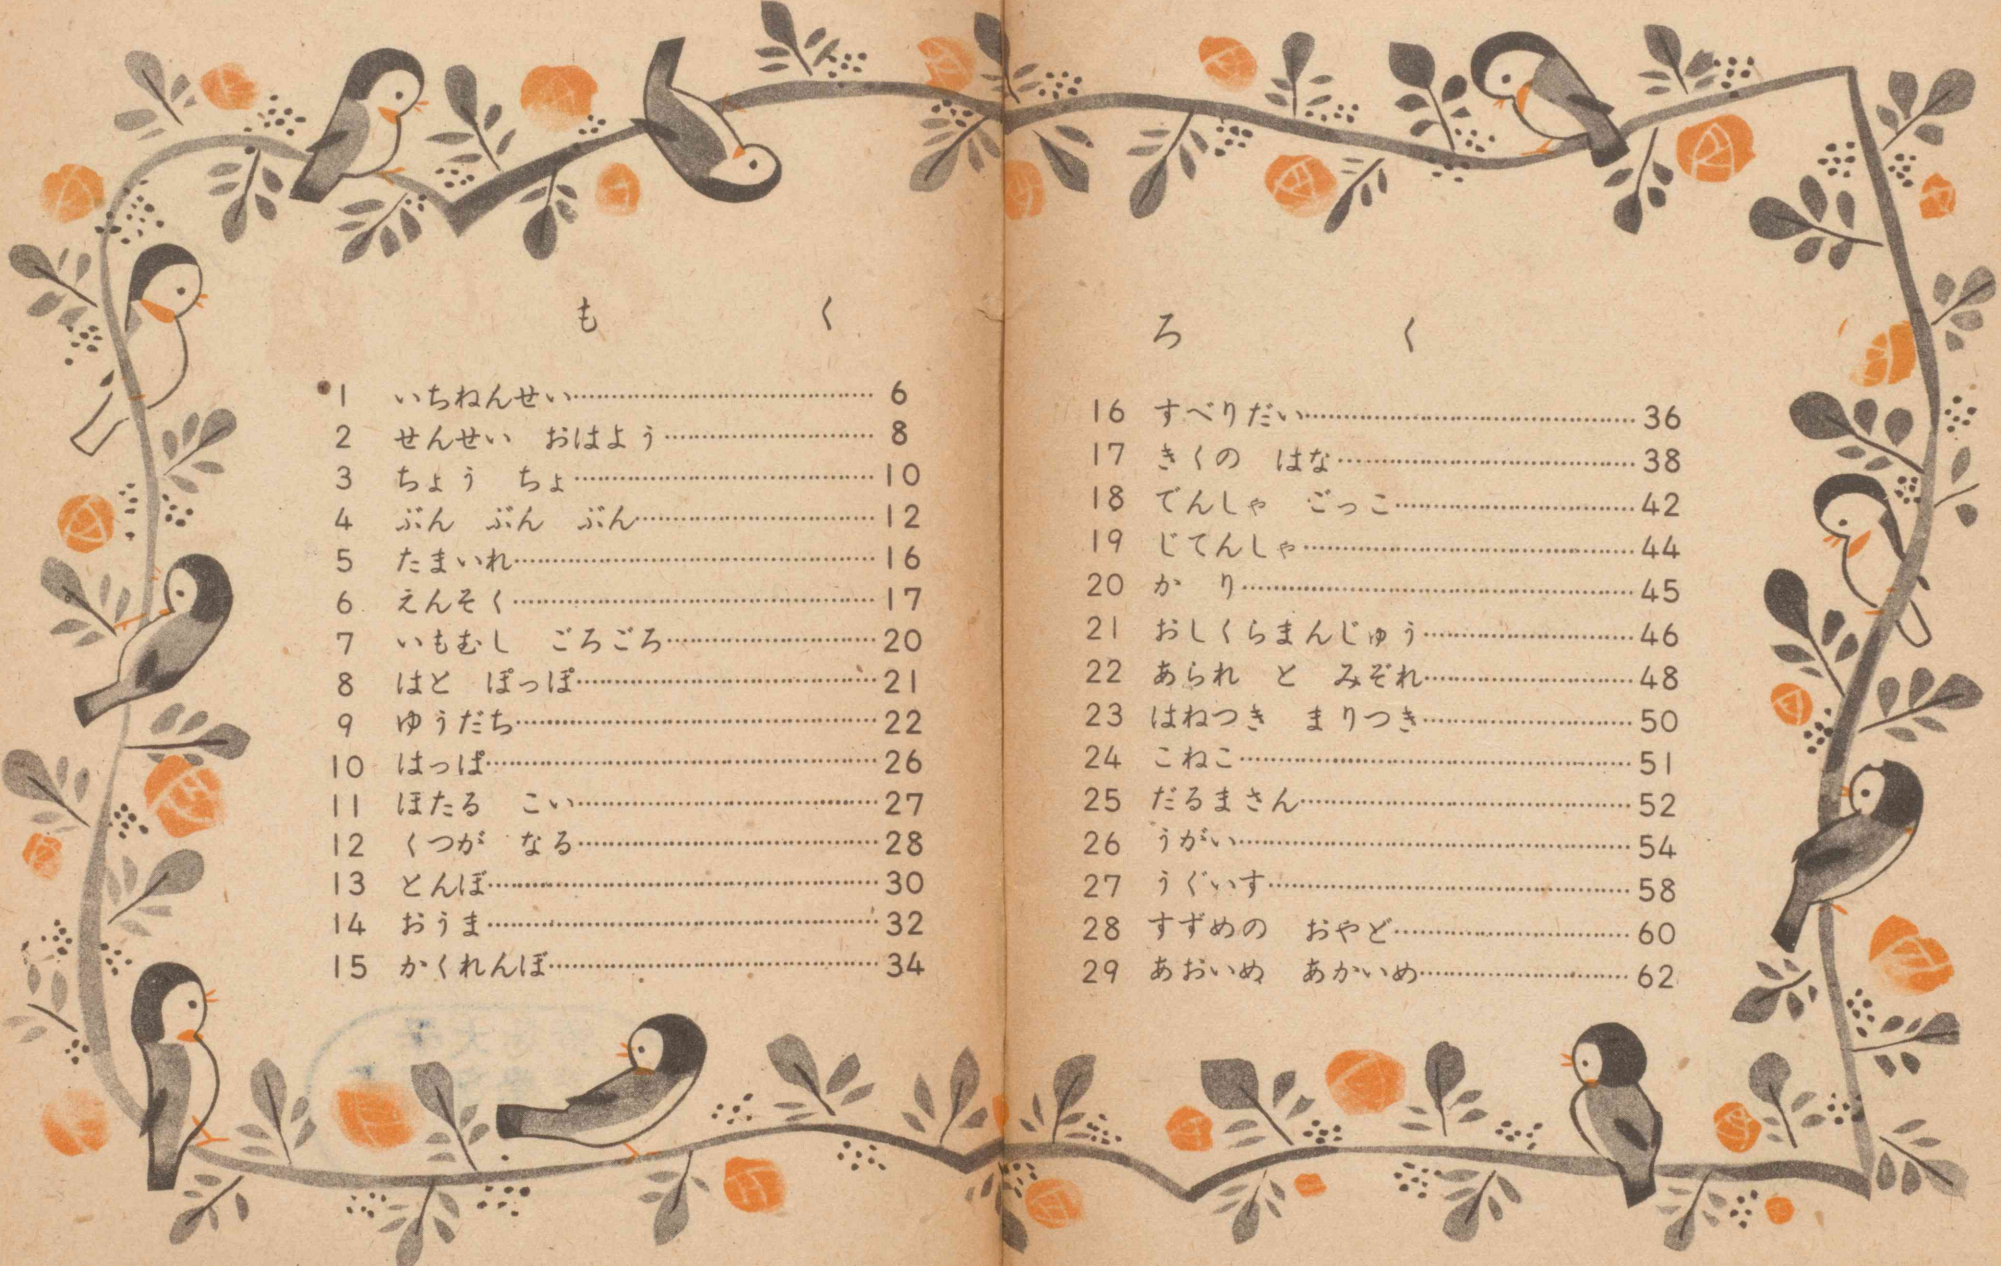 もくろく
1 いちねんせい……………………………6
2 せんせい おはよう……………………8
3 ちょう ちょ……………………………10
4 ぶん ぶん ぶん………………………12
5 たまいれ…………………………………16
6 えんそく…………………………………17
7 いもむし ごろごろ……………………20
8 はと ぽっぽ……………………………21
9 ゆうだち…………………………………22
10 はっぱ……………………………………26
11 ほたる こい……………………………27
12 くつが なる……………………………28
13 とんぼ……………………………………30
14 おうま……………………………………32
15 かくれんぼ………………………………34
16 すべりだい………………………………36
17 きくの はな……………………………38
18 でんしゃ ごっこ………………………42
19 じてんしゃ………………………………44
20 か り……………………………………45
21 おしくらまんじゅう……………………46
22 あられ と みぞれ……………………48
23 はねつき まりつき……………………50
24 こねこ……………………………………51
25 だるまさん………………………………52
26 うがい……………………………………54
27 うぐいす…………………………………58
28 すずめの おやど………………………60
29 あおいめ あかいめ……………………62